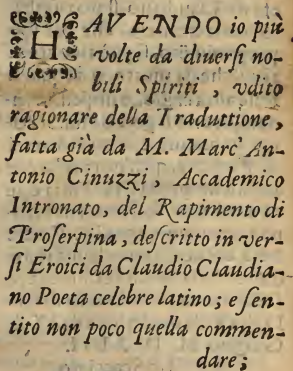 HAVENDO io più
volte da diuerſi no-
bili Spiriti, vdito
ragionare della Traduttione,
fatta già da M. Marc' An-
tonio Cinuzzi, Accademico
Intronato, del Rapimento di
Proſerpina, deſcritto in ver-
ſi Eroici da Claudio Claudia-
no Poeta celebre latino; e ſen-
tito non poco quella commen-
dare;